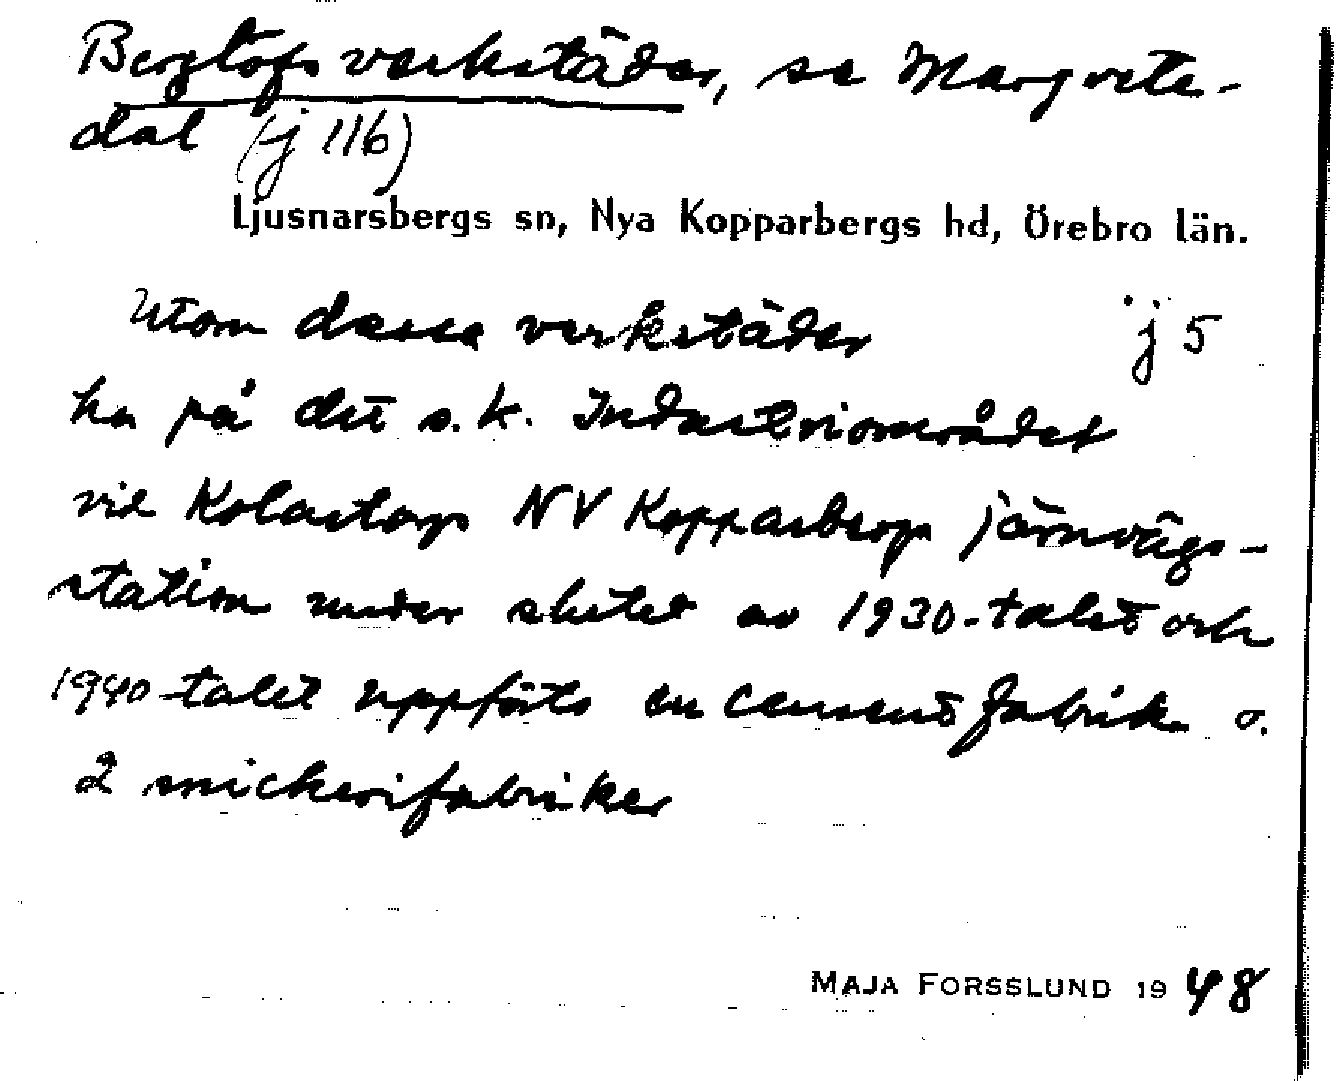 Berglöfs verkstäder, se Margrete-
dal (j 116)
Ljusnarsbergs sn, Nya Kopparbergs hd, Örebro län.
Utom dessa verkstäder j 5
ha på det s.k. Industriområdet
vid Kolartorp NV Kopparbergs järnvägs-
station under slutet av 1930-talet och
1940-talet uppförts en cementfabrik o.
2 snickerifabriker
MAJA FORSSLUND 1948